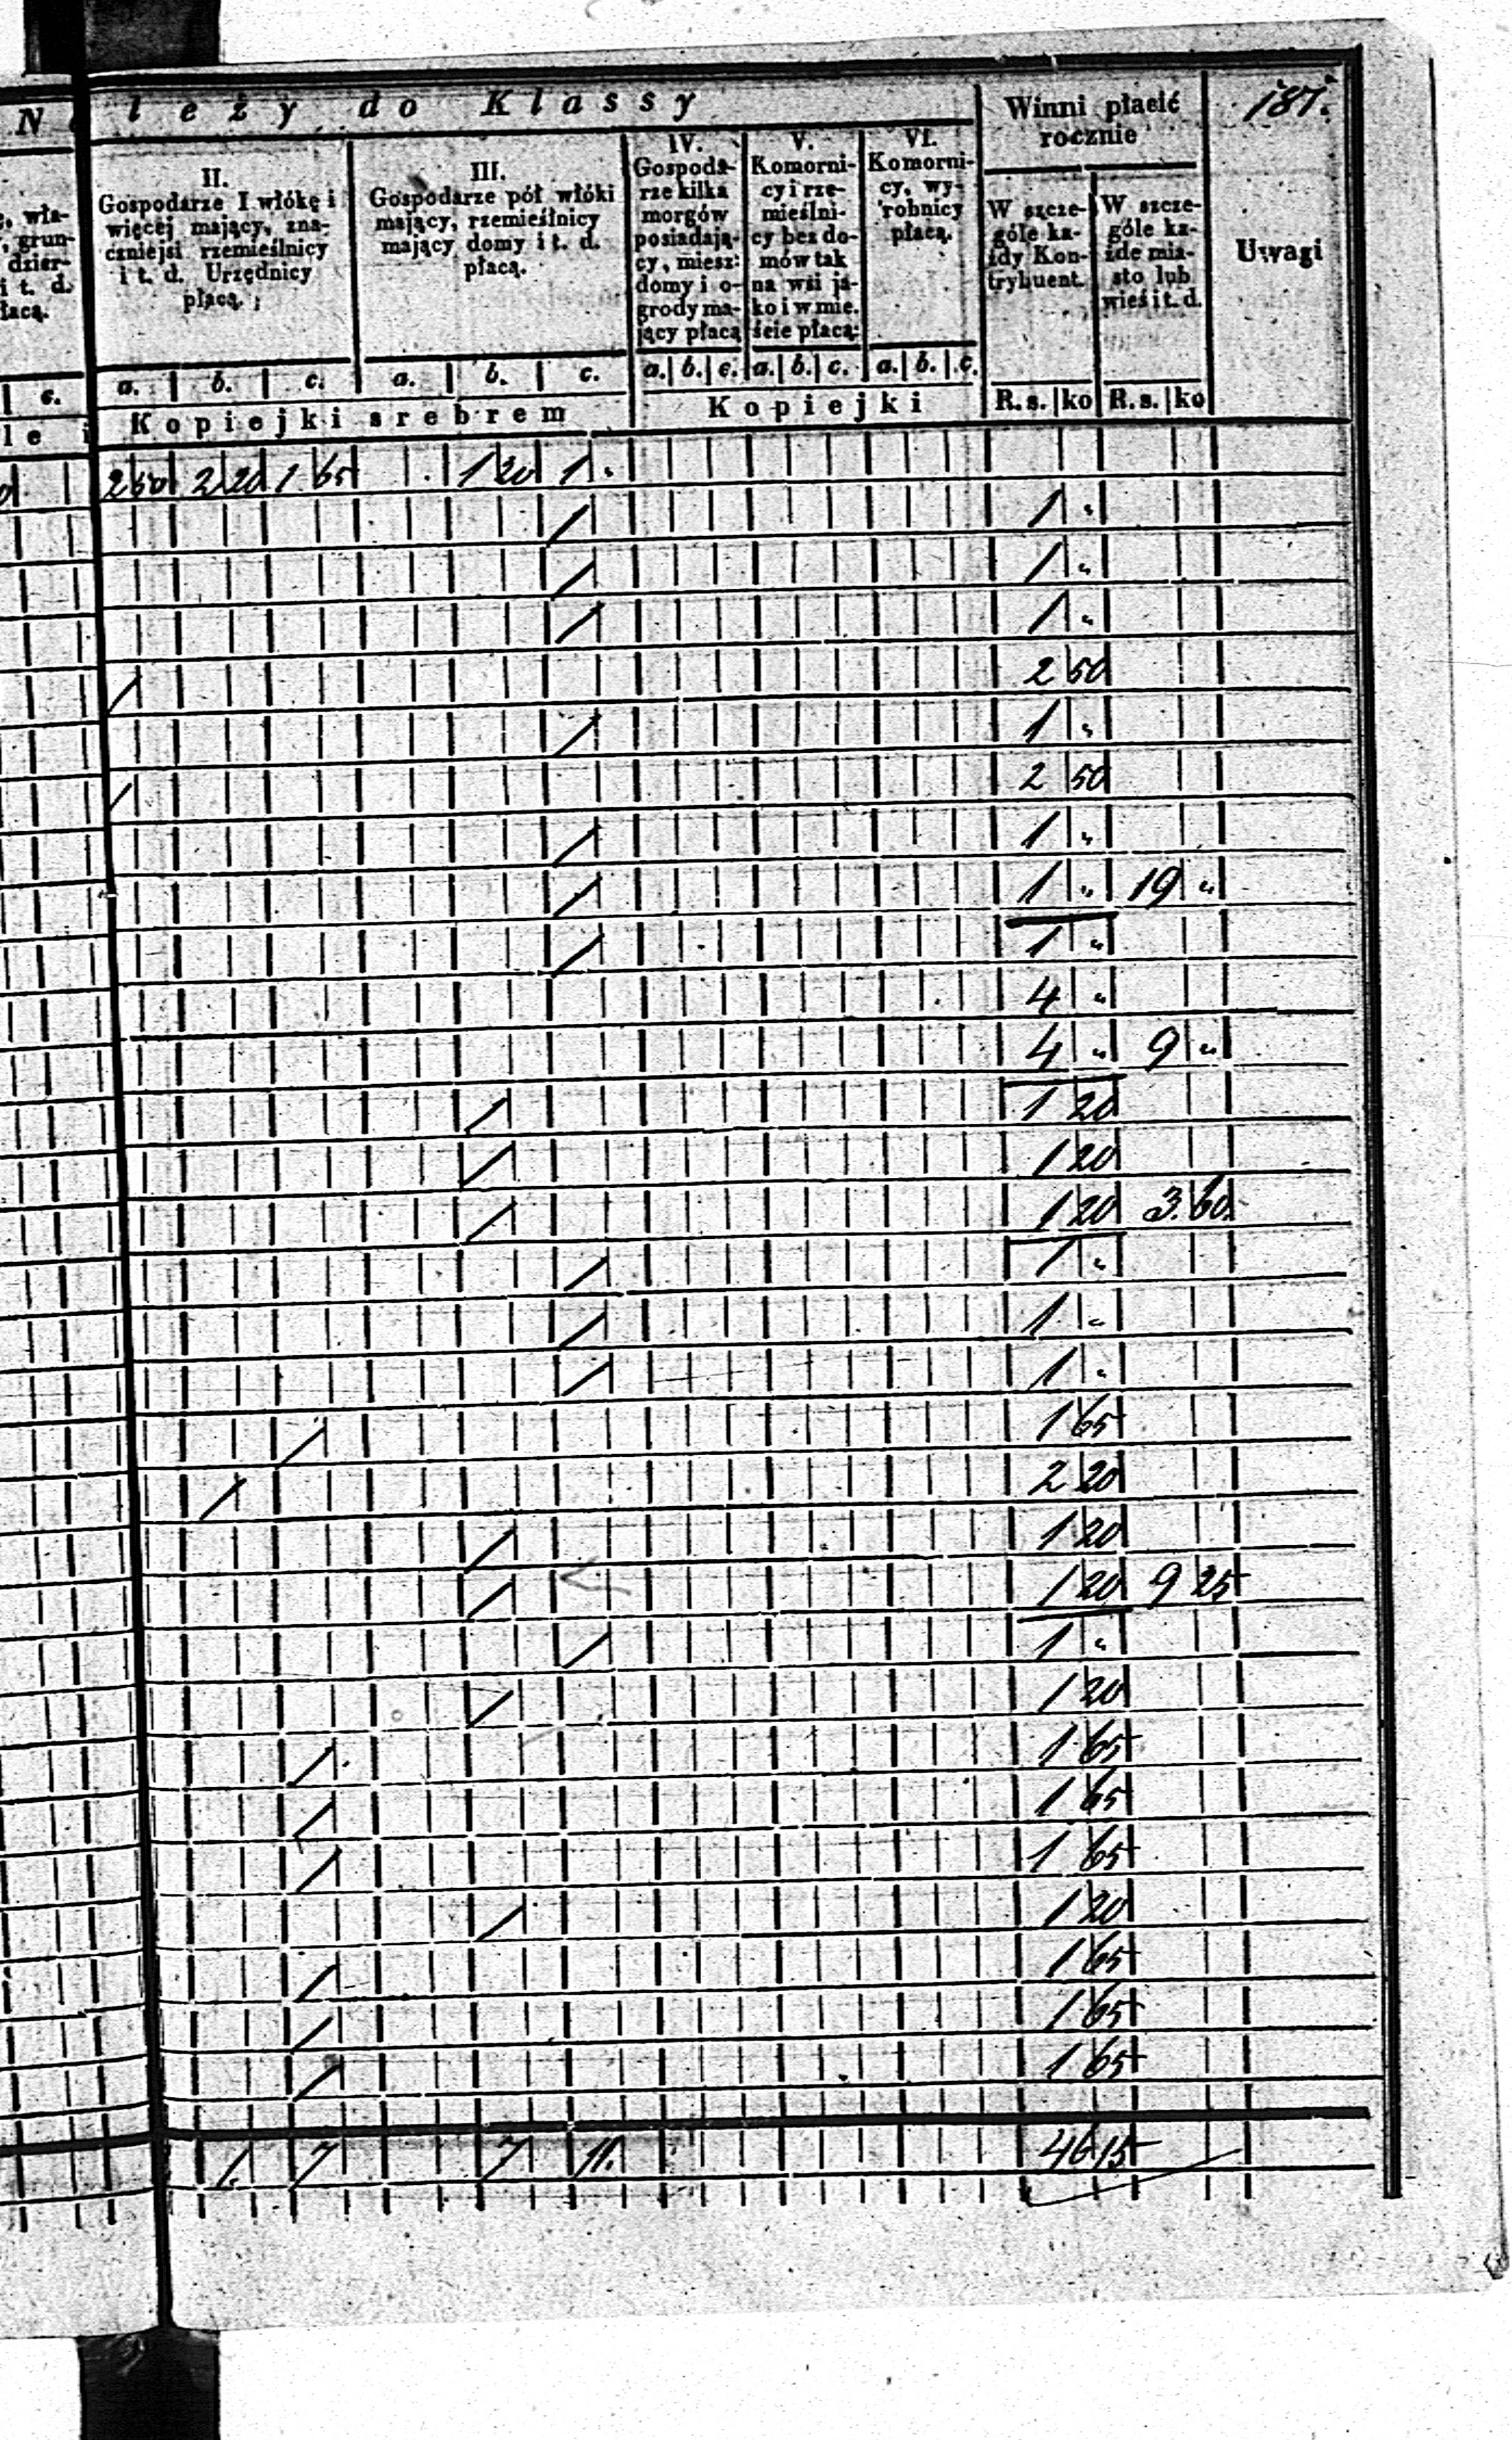 leży do Klassy
Winni płacić
rocznie
187.
II.
Gospodarze I włókę i
więcej mający, zna-
czniejsi rzemieślnicy
i t. d. Urzędnicy
płacą.
III.
Gospodarze pół włóki
mający, rzemieślnicy
mający domy i t. d.
płacą.
IV.
Gospoda-
rze kilka
morgów
posiadają-
cy, miesz:
domy i o-
grody ma-
jący płacą
V.
Komorni-
cy i rze-
mieślni-
cy bez do-
mów tak
na wsi ja-
ko i w mie.
ście płacą:
VI.
Komorni-
cy, wy-
robnicy
płacą.
W szcze-
góle ka-
żdy Kon-
trybuent.
W szcze-
góle ka-
żde mia-
sto lub
wieś i t. d.
Uwagi
wła-
grun-
dzier-
i t. d.
c. a. b. c. a. b. c. a. b. c. a. b. c. a. b. c. R.s. ko R.s. ko
Kopiejki srebrem Kopiejki
2 50 2 20 1 65 1 20 1 .
/ 1 "
/ 1 "
/ 1 "
/ 2 50
/ 1 "
/ 2 50
/ 1 "
/ 1 " 19 "
/ 1 "
4 "
4 " 9 "
/ 1 20
/ 1 20
/ 1 20 3 60
/ 1 "
/ 1 "
/ 1 "
/ 1 65
/ 2 20
/ 1 20
/ 1 20 9 25
/ 1 "
/ 1 20
/ 1 65
/ 1 65
/ 1 65
/ 1 20
/ 1 65
/ 1 65
/ 1 65
1. 7 7 11. 46 15